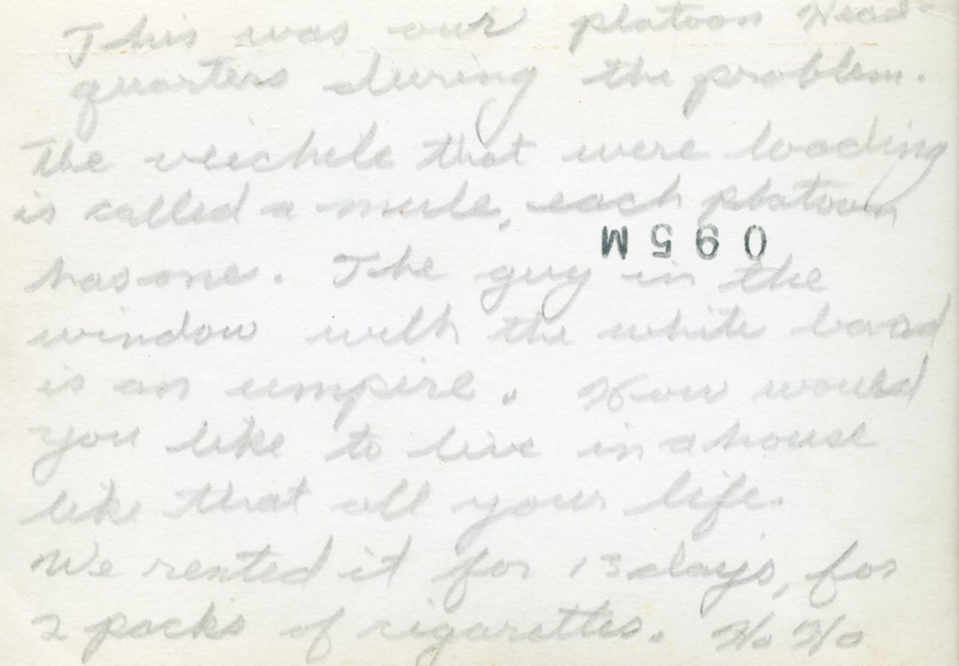 This was our platoon Head-
quarters during the problem.
The veichele that were loading
is called a mule, each platoon
M560
has one. The guy in the
window with the white band
is an umpire. How would
you like to live in a house
like that all your life.
We rented it for 13 days, for
2 packs of cigarettes. Ho Ho